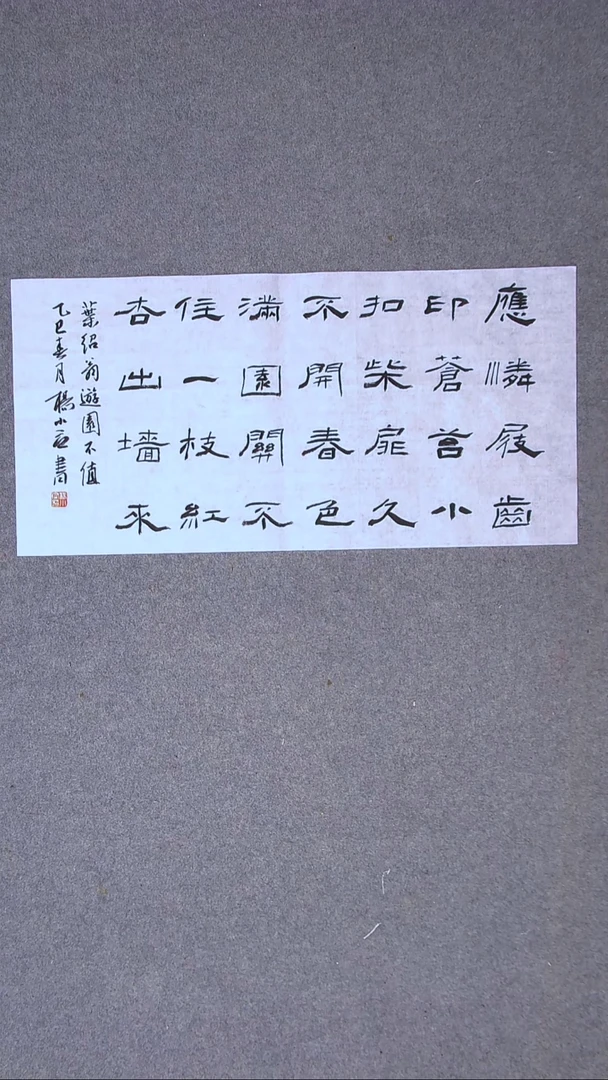 應憐屐齒
印蒼苔小
扣柴扉久
不開春色
滿園關不
住一枝紅
杏出墻來
葉紹翁遊園不值
乙巳春月楊小 書